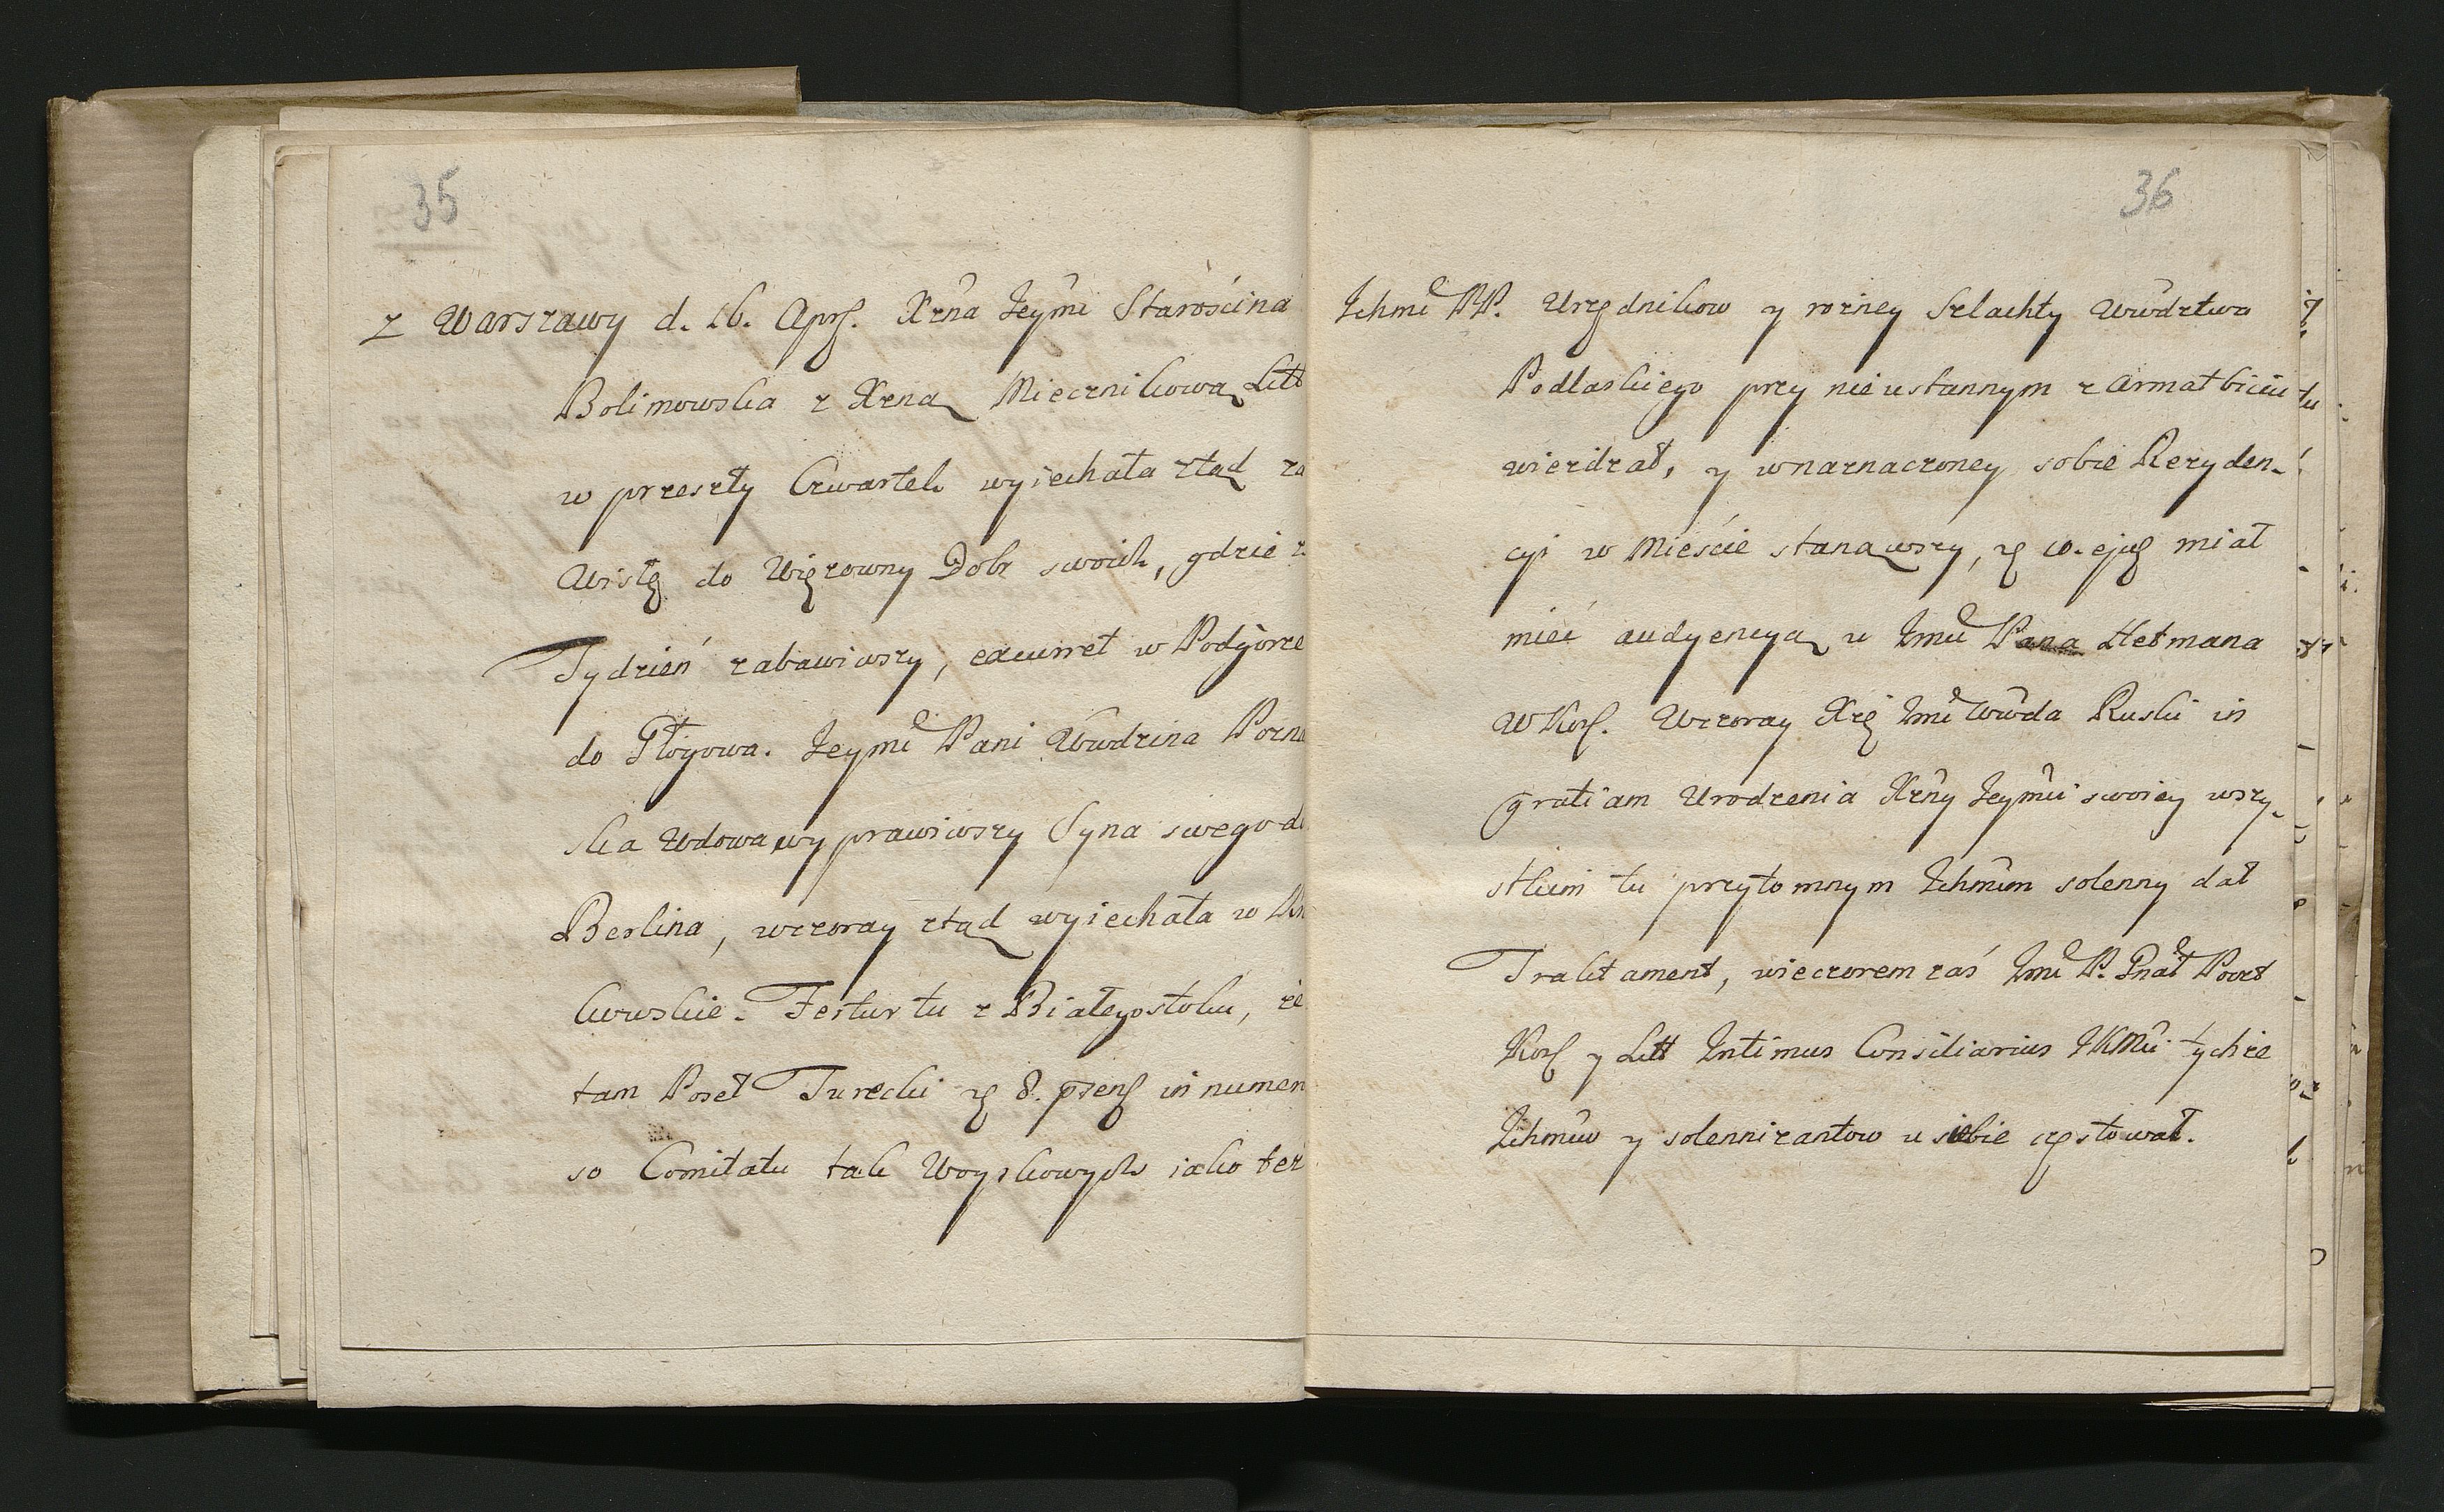 35
z Warszawy d. 16. Apr. Xżna Jeymć Starościna
Bolimowska z Xżną Miecznikową Litt
w przeszły Czwartek wyiechała ztąd za
Wisłę do Więzowny Dobr swoich, gdzie
Tydzień zabawiwszy, excurret w Podgórze
do Głogowa. Jeymć Pani Wwdzina Pozna
ska Wdowa wyprawiwszy Syna swego do
Berlina, wczoray ztąd wyiechała w
kowskie. Fertur tu z Białegostoku, że
tam Poseł Turecki 8. psent in numero
so Comitatu tak Woyskowych iako też
36
Ichmć PP. Urzędnikow y rożney Szlachty Wwdztwa
Podlaskiego przy nieustannym z Armat biciu
wierdzał, y w naznaczoney sobie Rezyden-
cyi w Mieście stanąwszy, 10. ejus miał
mieć audyencyą u Jmć Pana Hetmana
W Kor. Wczoray Xżę Jmć Wwda Ruski in
gratiam Urodzenia Xżny Jeymći swoiey wszy-
stkim tu przytomnym Ichmćm solenny dał
Traktament, wieczorem zaś Jmć P. Gnał Poczt
Kor y Litt Intimus Consiliarius JKMći tychże
Ichmćw y solennizantow u siebie częstował.